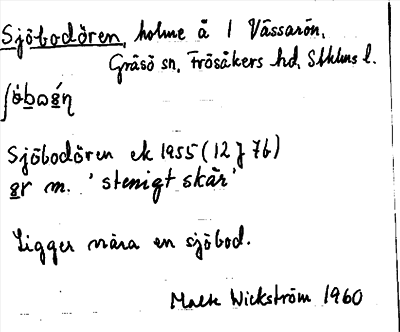 Sjöbodören, holme å 1 Vässarön,
Gräsö sn, Frösåkers hd, Sthlms l.
Sjöbodören ek 1955 (12 J 7b)
ör m. 'stenigt skär'
Ligger nära en sjöbod.
Wickström 1960